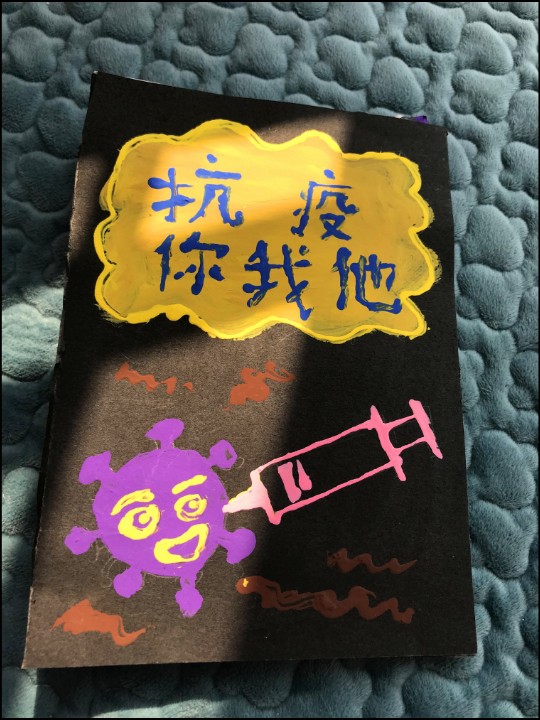 抗 疫
你我他